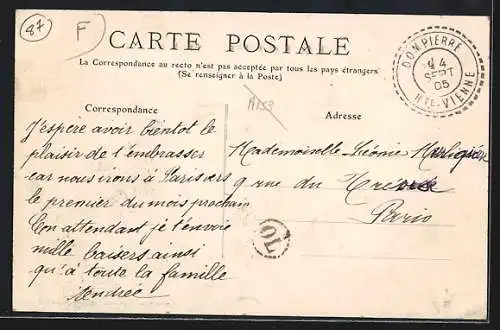 87
F
CARTE POSTALE
La Correspondance au recto n'est pas acceptée par tous les pays étrangers
(Se renseigner à la Poste)
DOMPIERRE
4
SEPT
05
HTE-VIENNE
A158
Correspondance
Adresse
J'espère avoir bientot le
plaisir de t'embrasser
car nous irons à Paris vers
le premier du mois prochain
En attendant je t'envoie
mille baisers ainsi
qu'à toute la famille
Andrée
Mademoiselle Léonie
9 rue du
Paris
OL